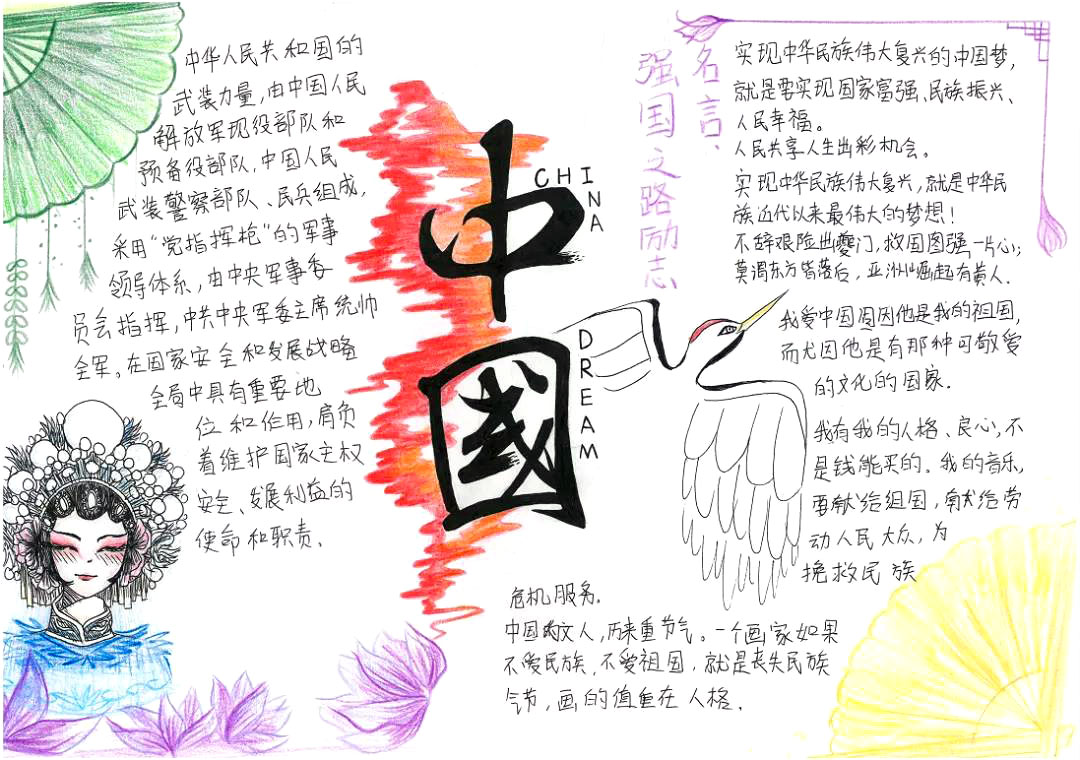 中华人民共和国的
武装力量,由中国人民
解放军现役部队和
预备役部队,中国人民
武装警察部队、民兵组成,
采用“党指挥枪"的军事
领导体系,由中央军事委
员会指挥,中共中央军委主席统帅
全军,在国家安全和发展战略
全局中具有重要地
位和作用,肩负
着维护国家主权
安全、发展利益的
使命和职责.
中國
CHINA
DREAM
强国之路励志
名言、
实现中华民族伟大复兴的中国梦,
就是要实现国家富强、民族振兴、
人民幸福。
人民共享人生出彩机会。
实现中华民族伟大复兴,就是中华民
族近代以来最伟大的梦想!
不辞艰险出夔门,救国图强一片心;
莫谓东方皆落后,亚洲崛起有黄人.
我爱中国因因他是我的祖国,
而尤因他是有那种可敬爱
的文化的国家.
我有我的人格、良心,不
是钱能买的。我的音乐,
要献给祖国,献给劳
动人民大众,为
挽救民族
危机服务.
中国的文人,历来重节气。一个画家如果
不爱民族,不爱祖国,就是丧失民族
气节,画的值重在人格.